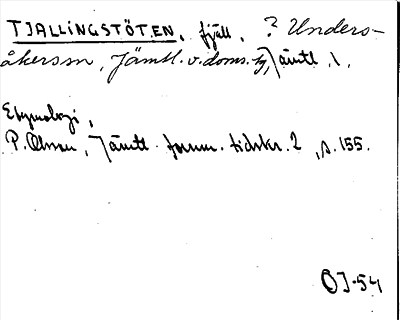 TJALLINGSTÖTEN, fjäll, ? Unders-
åkers sn, Jämtl. v. doms., Jämtl. l.
Etymologi,
P. Olsson, Jämtl. fornm. tidskr. 2, s. 155.
OJ-54